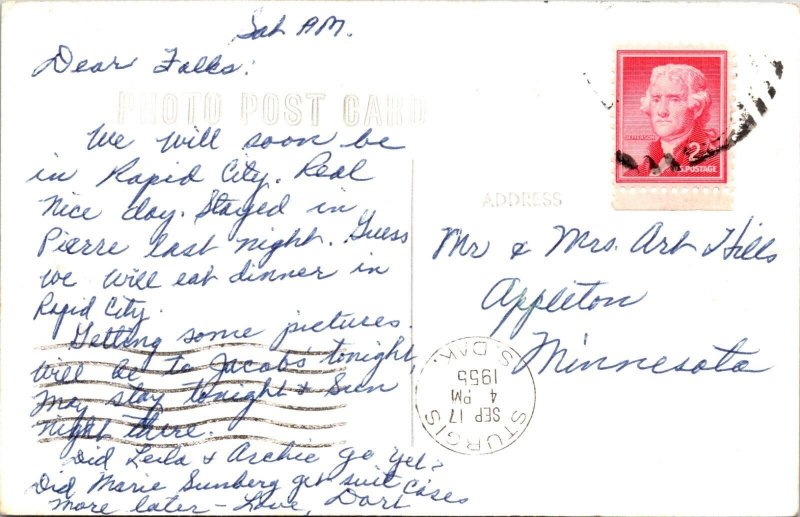 Sat AM.
Dear Folks:
PHOTO POST CARD
We will soon be
in Rapid City. Real
nice day. Stayed in
Pierre last night. Guess
we will eat dinner in
Rapid City.
Getting some pictures.
Will be to Jacobs tonight,
May stay tonight & Sun
night there.
Did Leila & Archie go yet?
Did Marie Sunberg get suit cases
more later - Love, Dori
JEFFERSON
2¢
U.S. POSTAGE
ADDRESS
Mr & Mrs. Art Hills
Appleton
Minnesota
STURGIS
S. DAK.
SEP 17
4 PM
1955